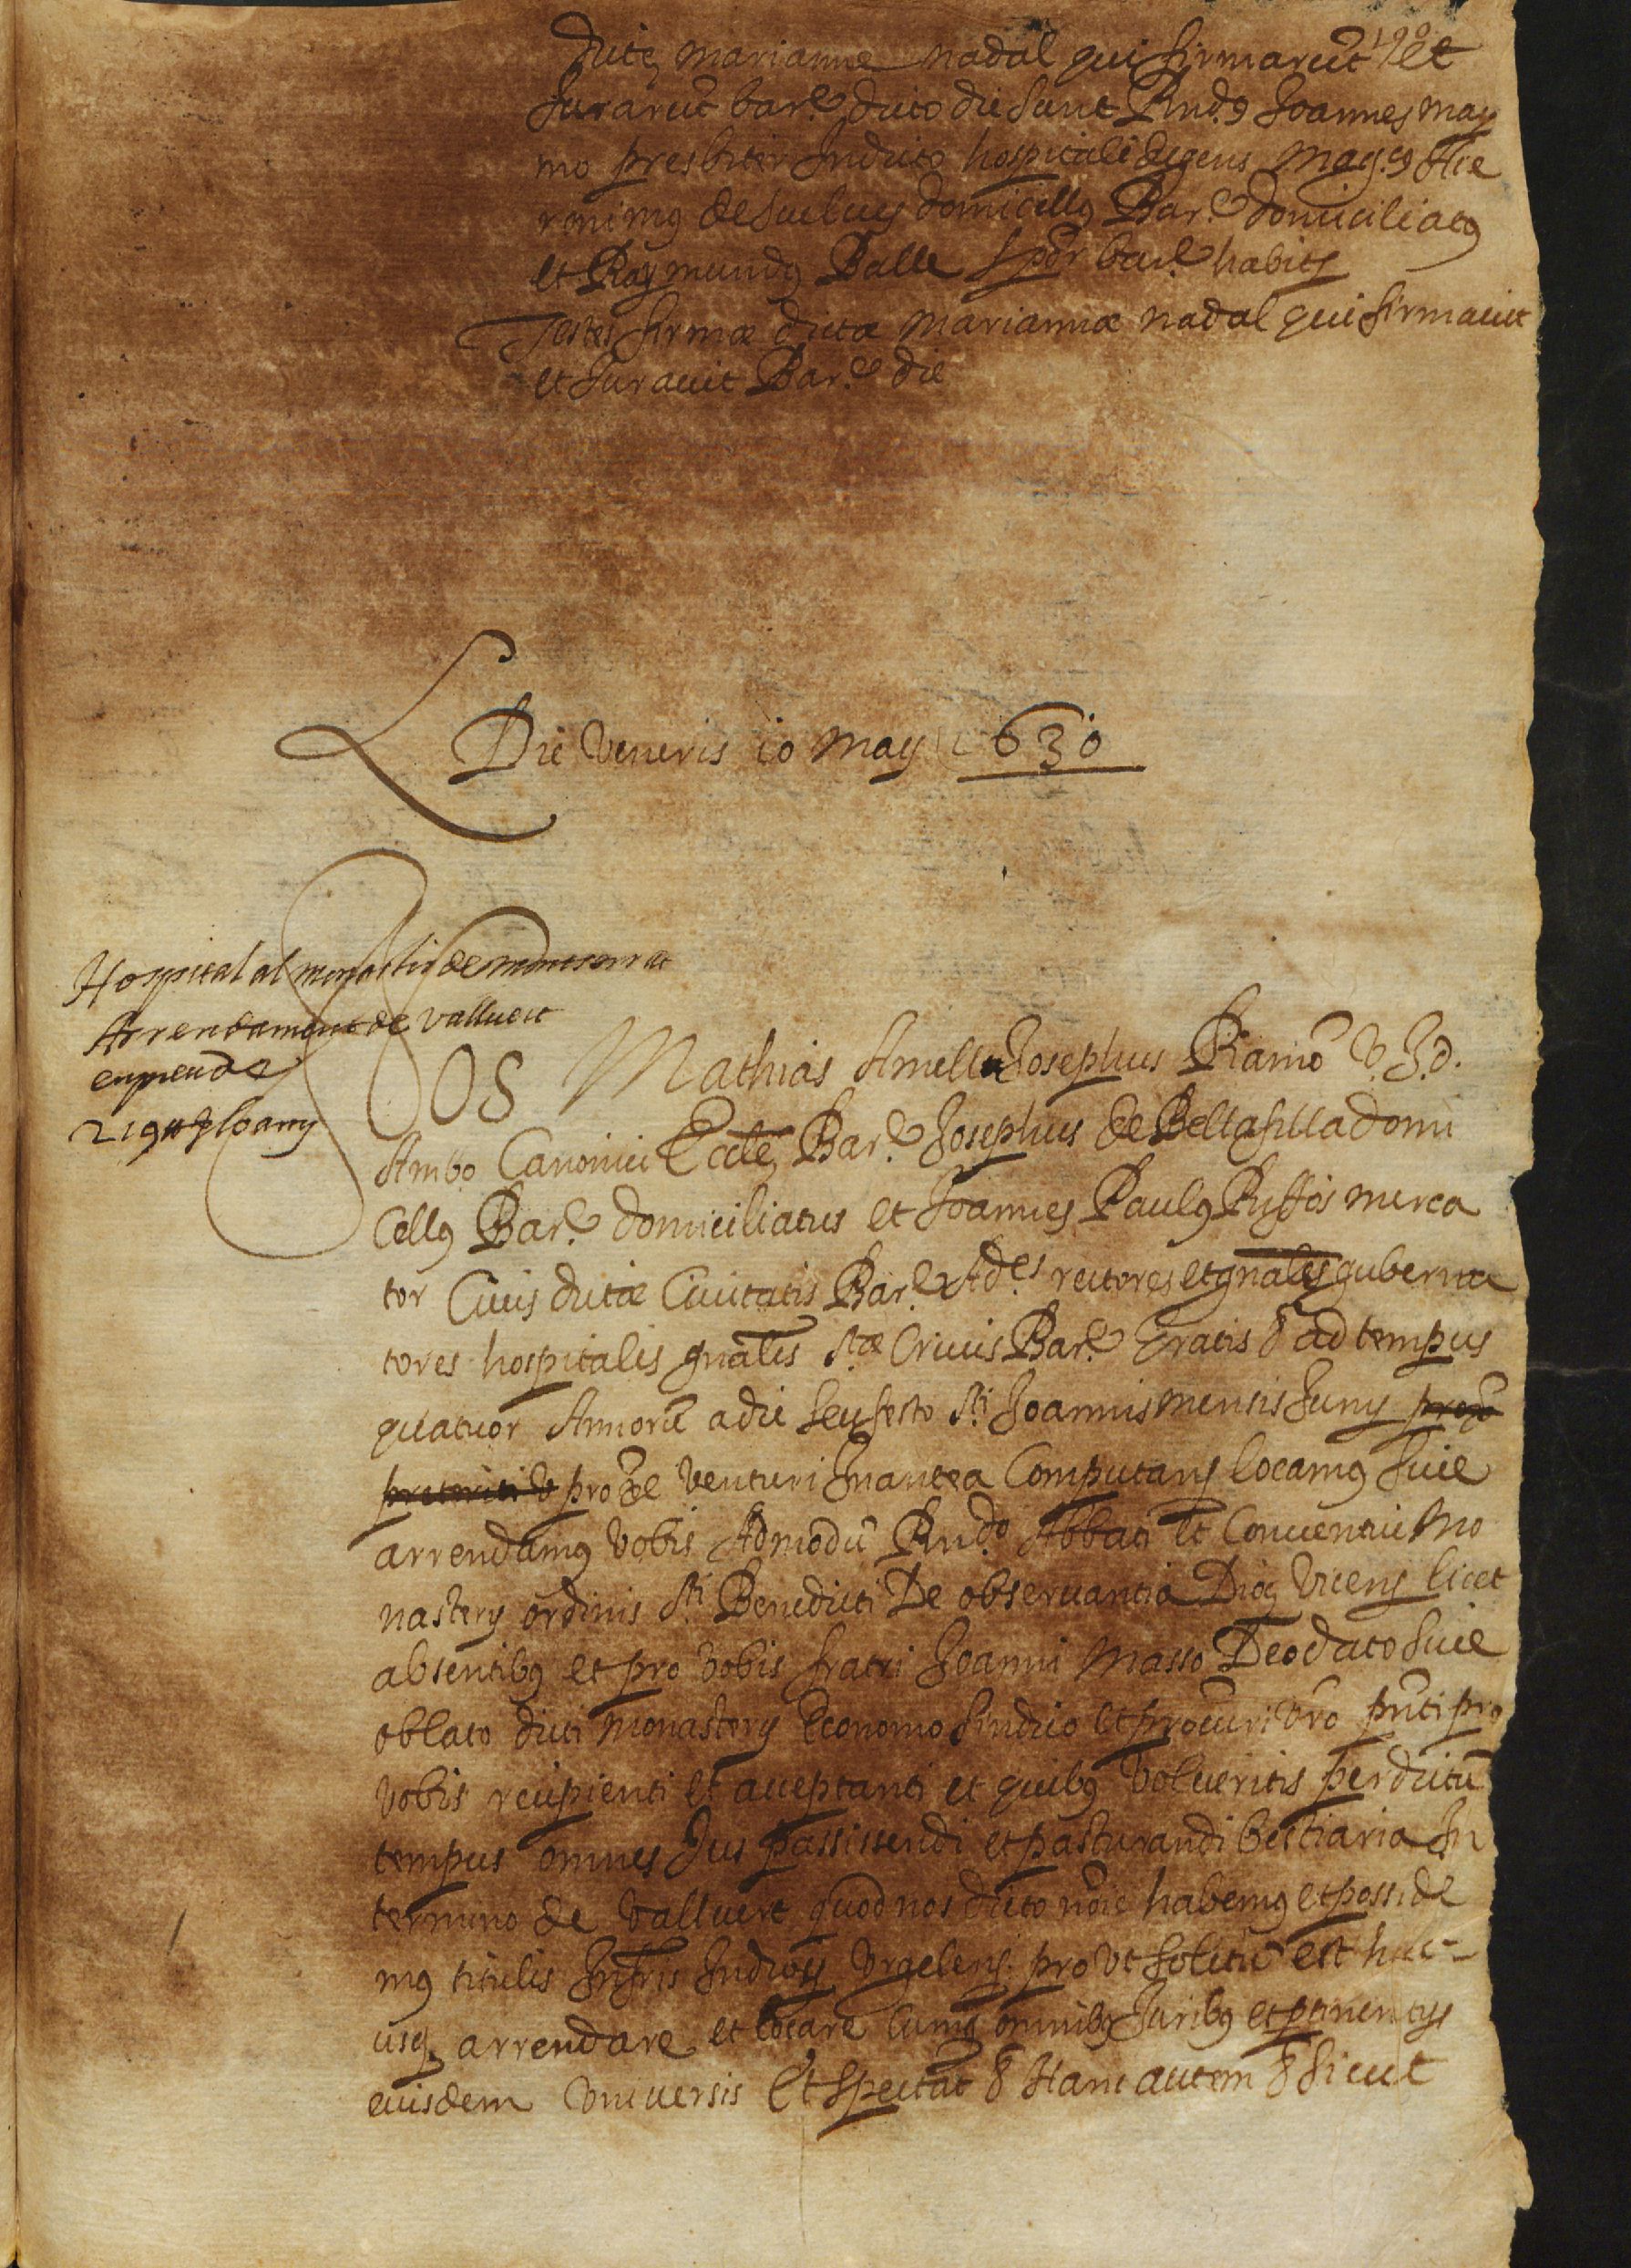 dictę marianne nadal qui firmarūt et
Jurarūt bar.e dicto die sunt Rnd.9 Joannes may
mo presbiter Indicto hospitali degens Mag.cus Hie
ronimꝰ de domicellꝰ Bar.e domiciliatꝰ
et Raymundꝰ Balle Bar.e habits
Testes firmæ dictæ Mariannæ nadal qui firmavit
et Juravit Bar.e die
Die Veneris 10 May 1630
Hospital al monastir de montserrat
Arrendament de vallvert
NOS Mathias Amell Josephus Ramō V.J.d.
Ambo Canonici Ecclę Bar.e Josephus de Bellafilla domi
cellꝰ Bar.e domiciliatus et Joannes Paulꝰ Riffos merca
tor Civis dictæ Civitatis Bar.e Ad.es rectores et gnales guberna
tores hospitalis gnālis Stæ Crucis Bar.e Gratis & ad tempus
quatuor Annorū a die seu festo Sti Joannis mensis Juny
pro ve venturi Inantea Computany locamꝰ sive
arrendamꝰ vobis Admodū Rnd.o Abbati et Conventui Mo
nastery ordinis Sti Benedicti De observantia Dioç Viceny licet
absentibꝰ et pro vobis fratri Joanni Masso Deodato sive
oblato dicti Monastery Economo sindico et procūri vro pnti pro
vobis recipienti et acceptanti et quibꝰ volueritis per dictū
tempus omnes Jus passissendi et pasturandi bestiaria In
termino de Vallvert quod nos dicto nōie habemꝰ et posside
mꝰ titulis Infris Indioç Urgeleny. pro ut solitū est huc-
usq. arrendare et locare Cum omnibꝰ Juribꝰ et ptinentys
eiusdem Universis Et spectat & Hanc autem & sicut